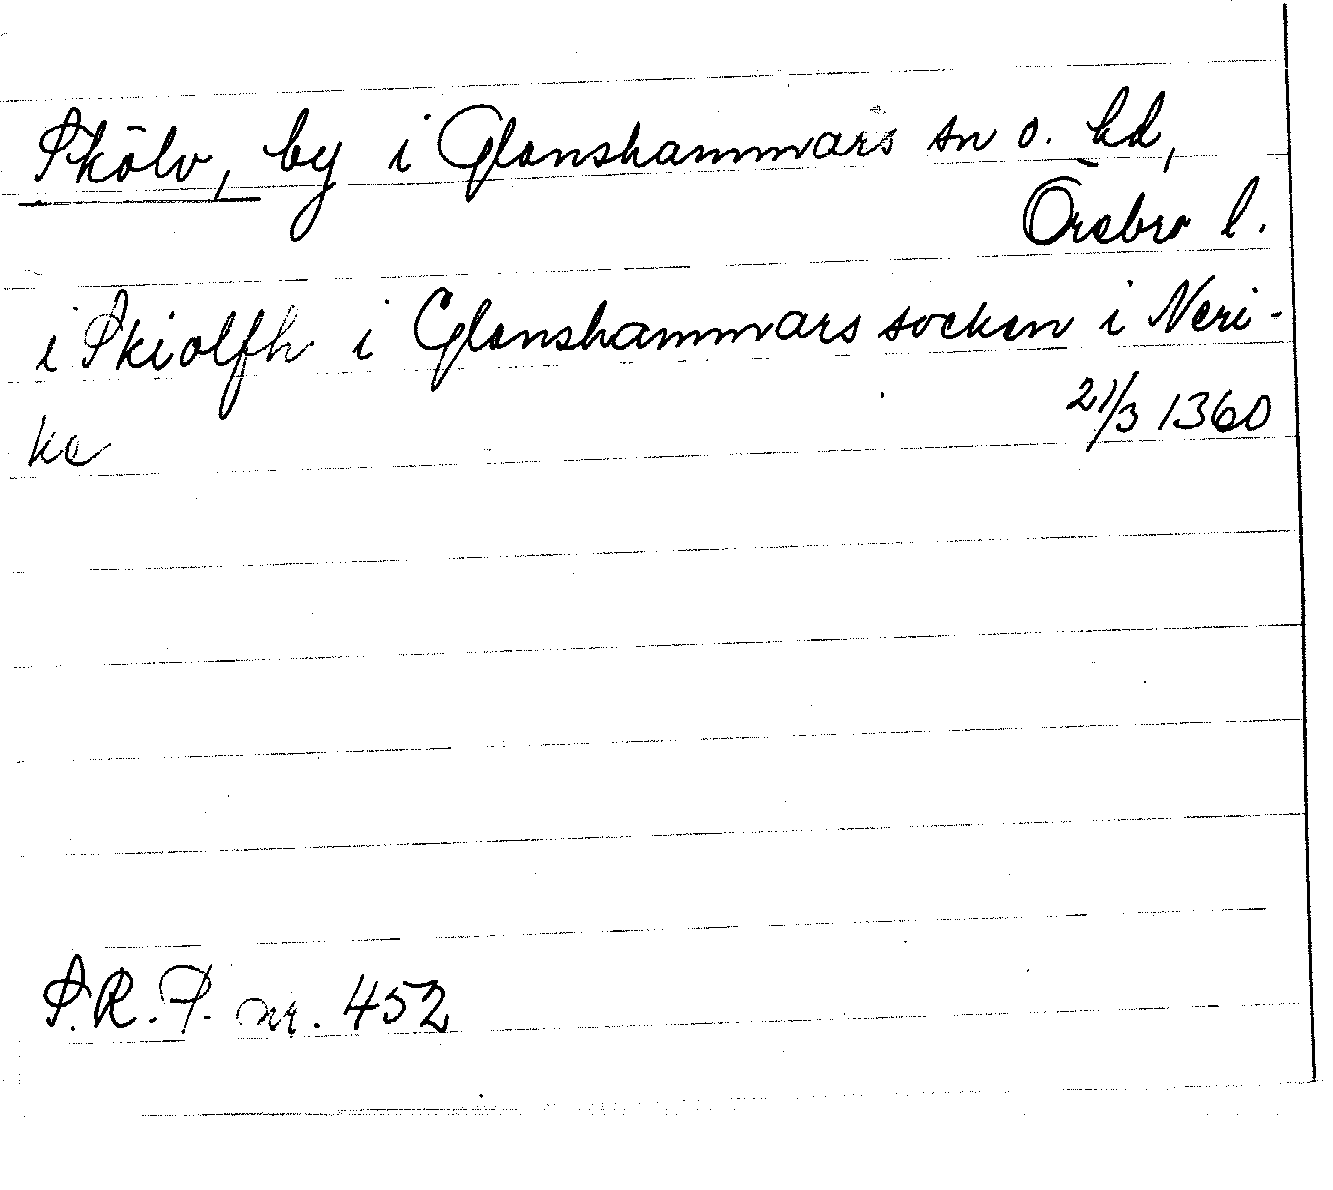 Skölv, by i Glanshammars sn o. hd,
Örebro l.
i Skiolfh i Glanshammars socken i Neri-
ke 21/3 1360
S.R.P. nr. 452